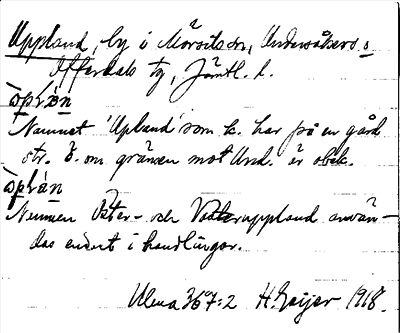 Uppland, by i Mörsils sn, Undersåkers o
Offerdals tg, Jämtl. l.
òplàn
Namnet 'Upland' som k. har på en gård
str. Ö. om gränsen mot Und. är obek.
òplàn
Namnen Öster- och Västeruppland använ-
das endast i handlingar.
Ulma 367:2 H. Geijer 1918.